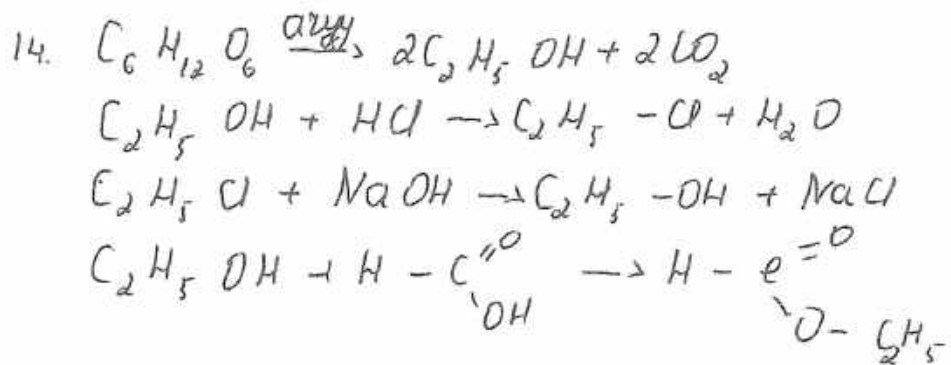 14. C₆H₁₂O₆ ашу→ 2C₂H₅OH + 2CO₂
C₂H₅OH + HCl → C₂H₅-Cl + H₂O
C₂H₅Cl + NaOH → C₂H₅-OH + NaCl
C₂H₅OH + H-C=O → H-C=O
OH O-C₂H₅